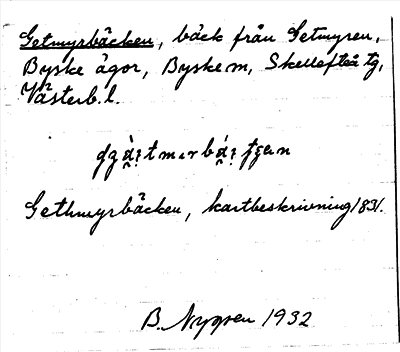 Getmyrbäcken, bäck från Getmyren,
Byske ägor, Byske sn, Skellefteå tg,
Västerb. l.
Gethmyrbäcken, kartbeskrivning 1831.
B. Nygren 1932